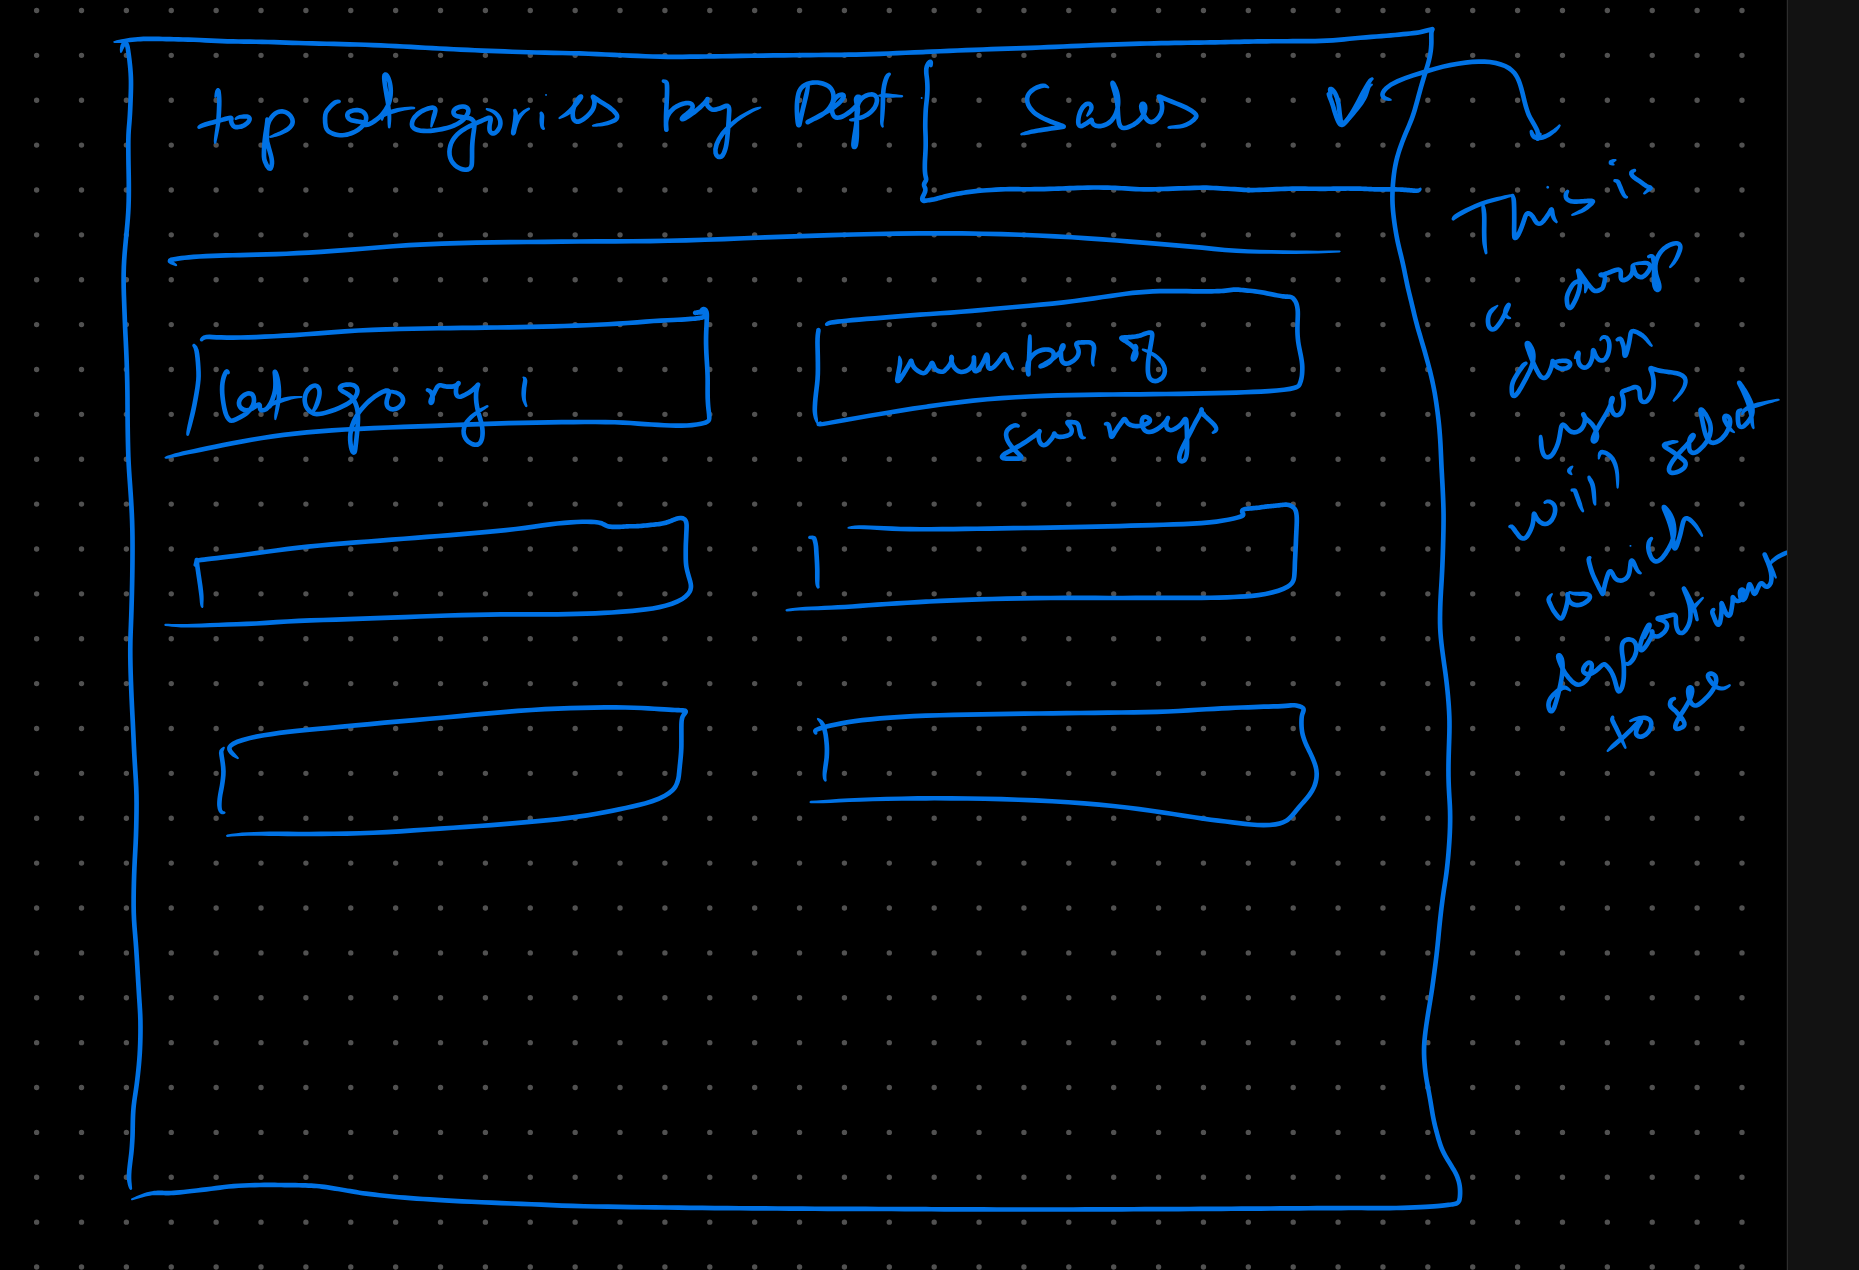 top categories by Dept
Sales
Category 1
number of
surveys
This is
a drop
down
users
will select
which
department
to see